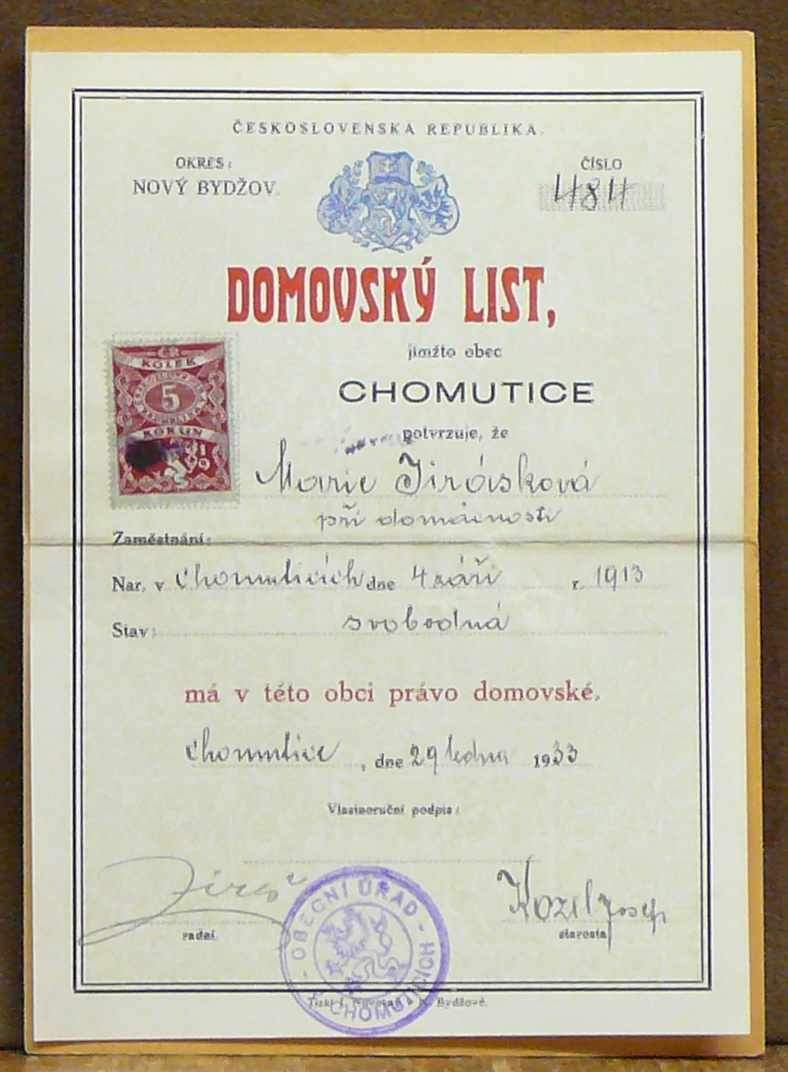 ČESKOSLOVENSKÁ REPUBLIKA.
OKRES:
NOVÝ BYDŽOV.
ČÍSLO
484
DOMOVSKÝ LIST,
jímžto obec
CHOMUTICE
potvrzuje, že
KOLEK
5
KORUN
Marie Jirásková
při domácnosti
Zaměstnání:
Nar. v Chomuticích dne 4 září r. 1913
Stav: svobodná
má v této obci právo domovské.
Chomutice, dne 29 ledna 1933
Vlastnoruční podpis:
Kozel Josef
radní. starosta
OBECNÍ ÚŘAD
V CHOMUTICÍCH
Tiskl N. Bydžově.